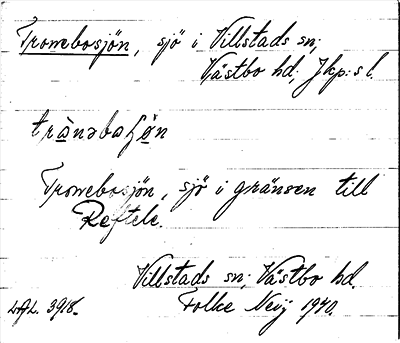 Tronebosjön, sjö i Villstads sn;
Västbo hd. Jkp:s l.
trònəbaʃö̀n
Tronebosjön, sjö i gränsen till
Reftele.
Villstads sn; Västbo hd.
LAL. 3918. Folke Neij 1940.